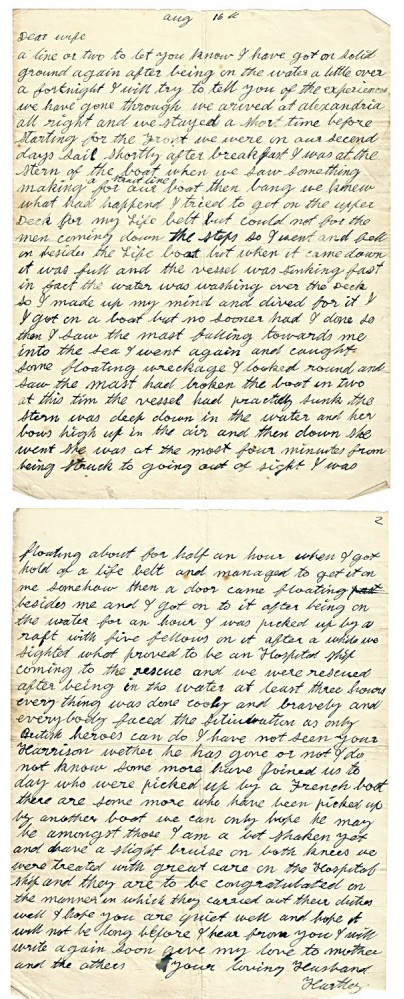 aug 16th
Dear wife
a line or two to let you know I have got on solid
ground again after being on the water a little over
a fortknight I will try to tell you of the experiences
we have gone through we arived at alexandria
all right and we stayed a short time before
starting for the front we were on our second
days sail shortly after breakfast I was at the
stern of the boat when we saw something
making straight for our boat then bang we knew
what had happend I tried to get on the upper
Deck for my life belt but could not for the
men coming down the steps so I went and fell
in besides the life boat but when it came down
it was full and the vessel was sinking fast
in fact the water was washing over the deck
so I made up my mind and dived for it I
I got on a boat but no sooner had I done so
then I saw the mast falling towards me
into the sea I went again and caught
some floating wreckage I looked round and
saw the mast had broken the boat in two
at this tim the vessel had practly sunk the
stern was deep down in the water and her
bows high up in the air and then down she
went she was at the most four minutes from
being struck to going out of sight I was
2
floating about for half an hour when I got
hold of a life belt and managed to get it on
me somehow then a door came floating past
besides me and I got on to it after being on
the water for an hour I was picked up by a
raft with five fellows on it after a while we
sighted what proved to be an Hospital ship
coming to the rescue and we were rescued
after being in the water at least three hours
every thing was done cooly and bravely and
everybody faced the sitiuation as only
British heroes can do I have not seen your
Harrison wether he has gone or not I do
not know some more have Joined us to
day who were picked up by a French boat
there are some more who have been picked up
by another boat we can only hope he may
be amongst those I am a bit shaken yet
and have a slight bruise on both knees we
were treated with great care on the Hospital
ship and they are to be congratulated on
the manner in which they carried out their duties
well I hope you are quiet well and hope it
will not be long before I hear from you I will
write again soon give my love to mother
and the others your loving Husband
Hartley